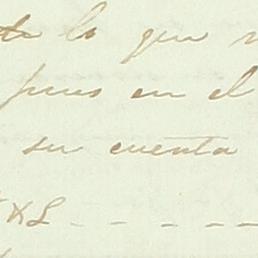 lo que
pues en el
su cuenta